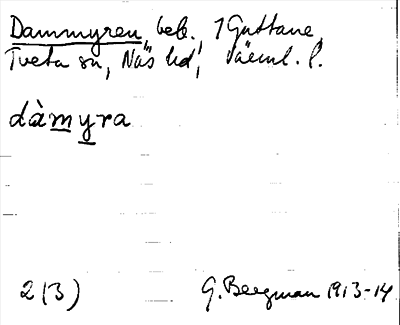 Dammyren, beb., 1 Guttane,
Tveta sn, Näs hd, Värml. l.
dàmyra
2 (3) G. Bergman 1913-14